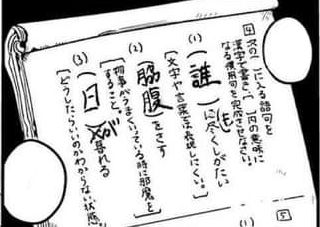 4 次の( )に入る語句を
漢字で書き、[ ]内の意味に
なる慣用句を完成させなさい。
(1) (誰も)に尽くしがたい
[文字や言葉では表現しにくい。]
(2) (脇腹)をさす
[物事がうまくいっている時に邪魔を
すること。]
(3) (日)が暮れる
[どうしたらいいのかわからない状態。]
5
(1)